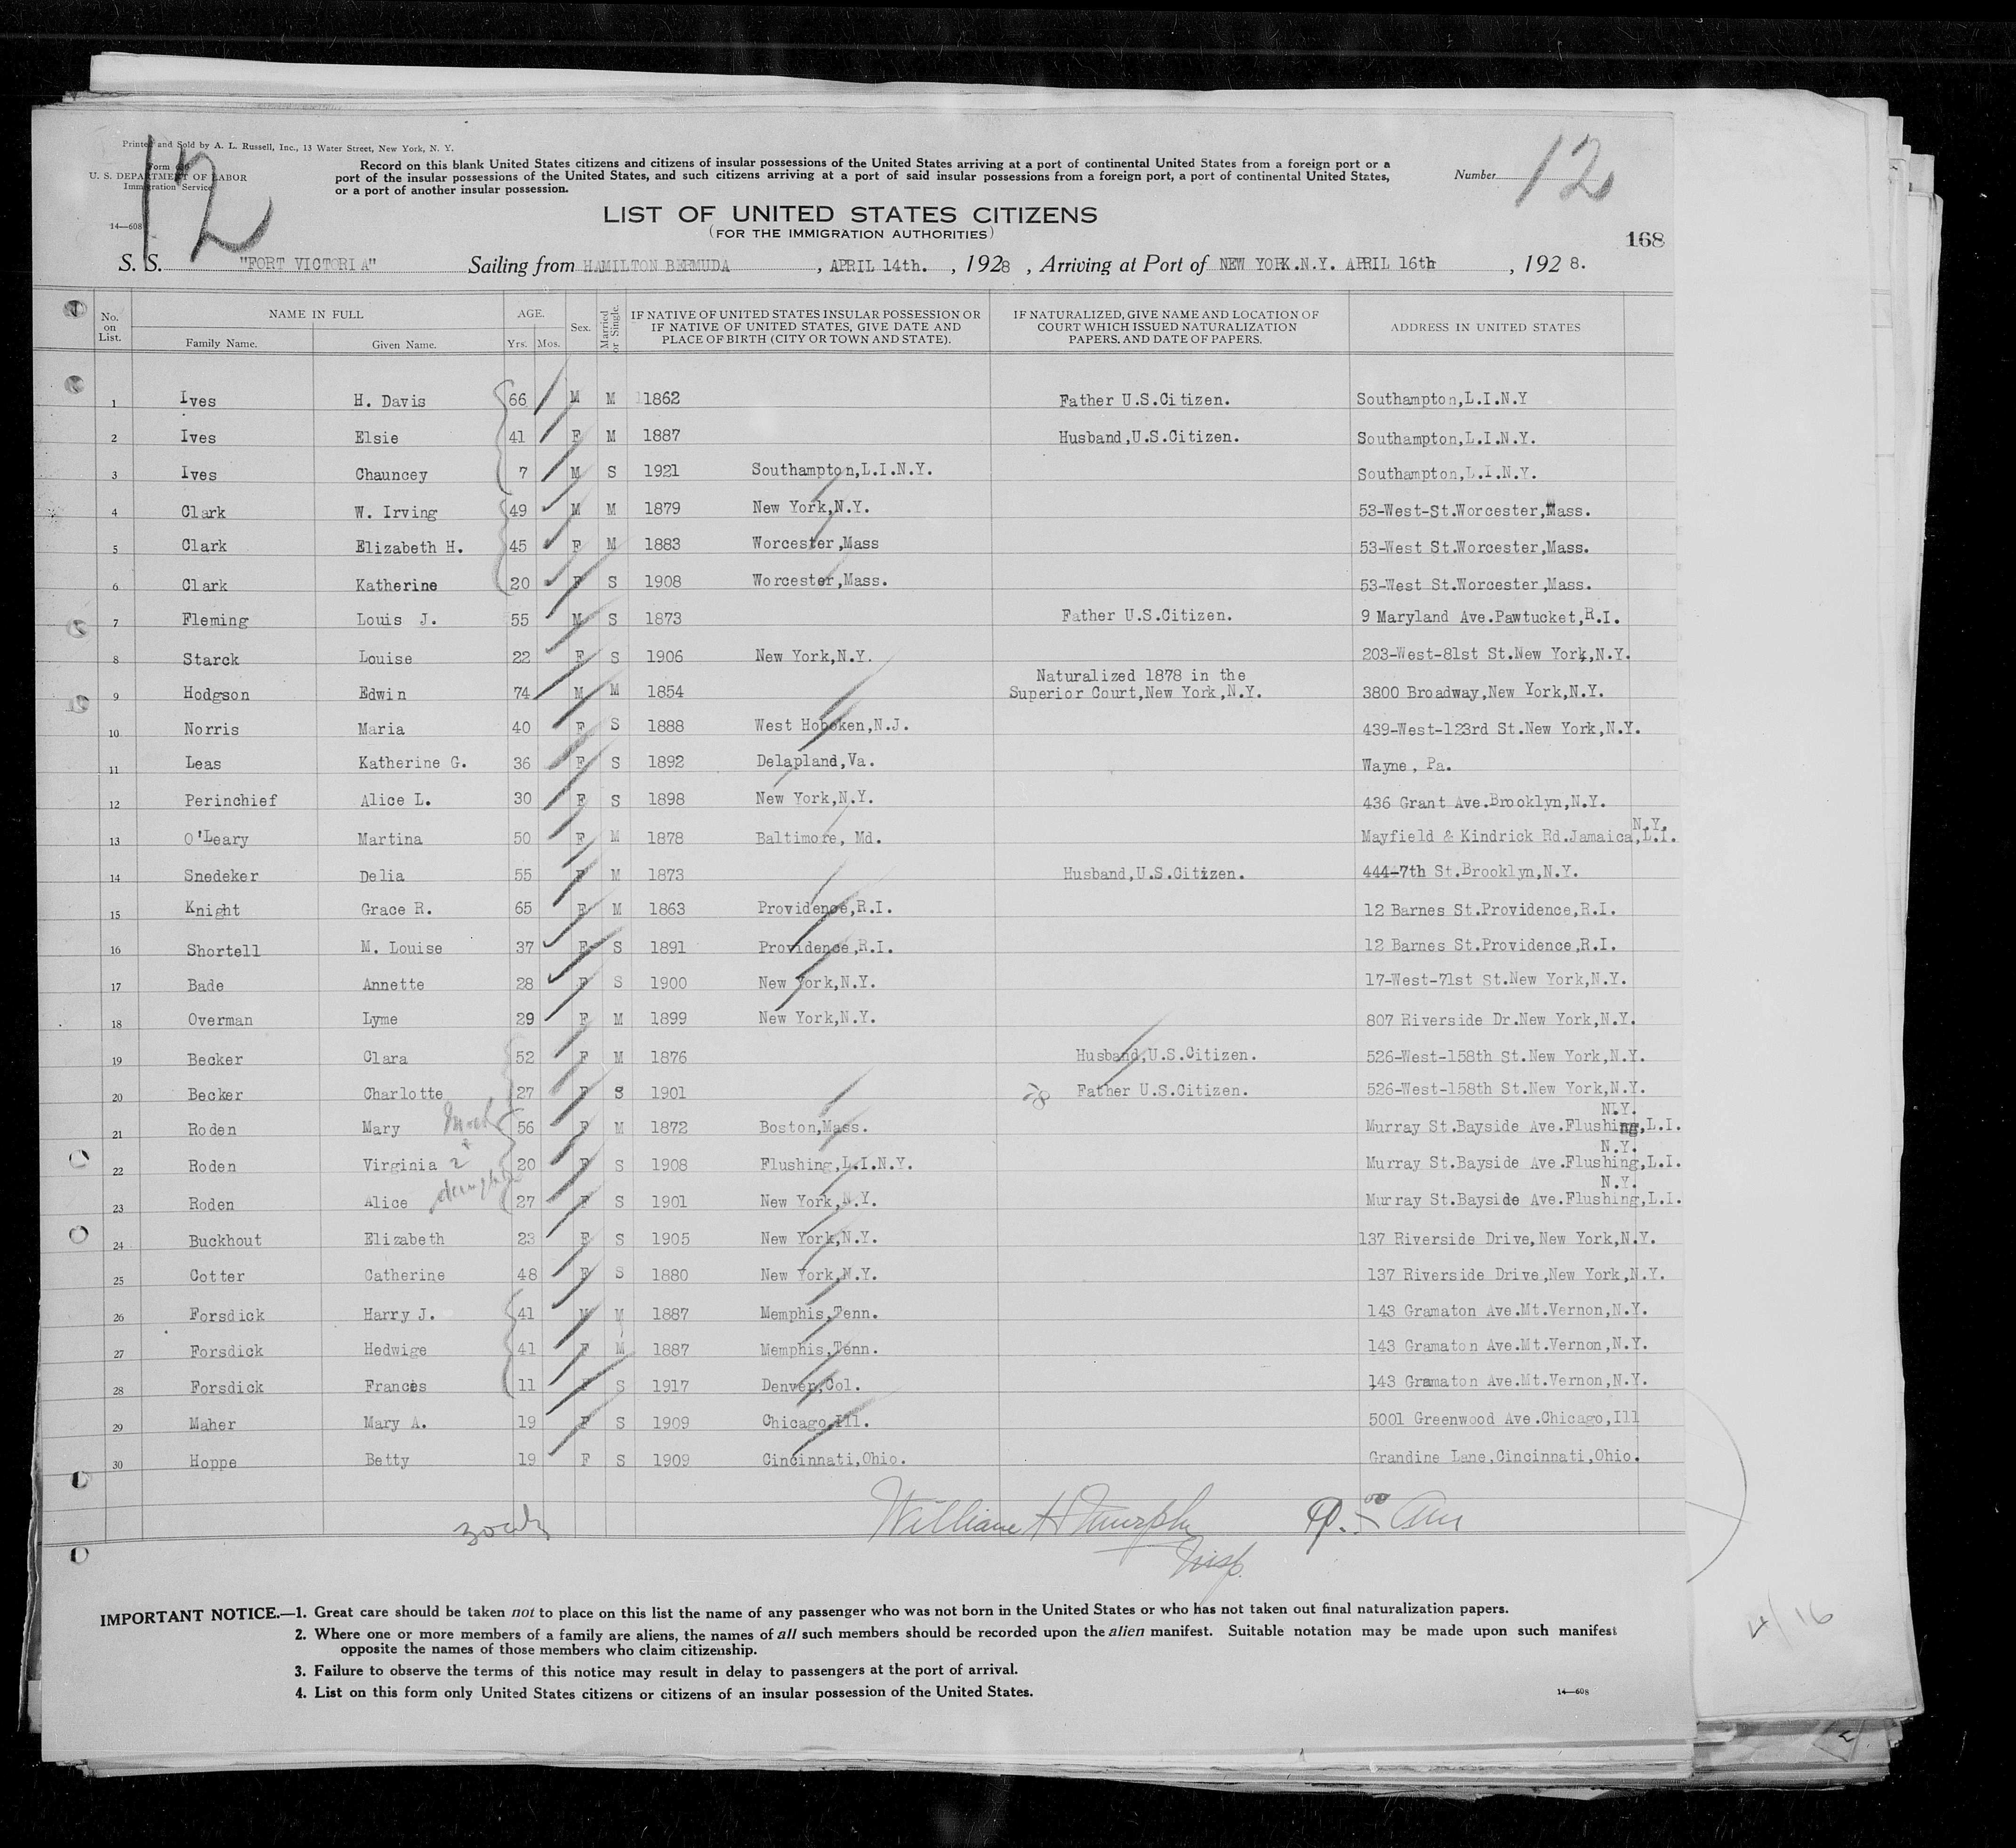 Printed and Sold by A. L. Russell, Inc., 13 Water Street, New York, N. Y.
Form
U. S. DEPARTMENT OF LABOR
Immigration Service
14—608
12
Record on this blank United States citizens and citizens of insular possessions of the United States arriving at a port of continental United States from a foreign port or a
port of the insular possessions of the United States, and such citizens arriving at a port of said insular possessions from a foreign port, a port of continental United States,
or a port of another insular possession.
Number 12
LIST OF UNITED STATES CITIZENS
(FOR THE IMMIGRATION AUTHORITIES)
168
S. S. "FORT VICTORIA" Sailing from HAMILTON BERMUDA, APRIL 14th. , 1928 , Arriving at Port of NEW YORK.N.Y. APRIL 16th , 1928.
No. on List. NAME IN FULL Family Name. Given Name. AGE. Yrs. Mos. Sex. Married or Single. IF NATIVE OF UNITED STATES INSULAR POSSESSION OR IF NATIVE OF UNITED STATES, GIVE DATE AND PLACE OF BIRTH (CITY OR TOWN AND STATE). IF NATURALIZED, GIVE NAME AND LOCATION OF COURT WHICH ISSUED NATURALIZATION PAPERS, AND DATE OF PAPERS. ADDRESS IN UNITED STATES
1 Ives H. Davis 66 M M 1862 Father U.S.Citizen. Southampton,L.I.N.Y
2 Ives Elsie 41 F M 1887 Husband,U.S.Citizen. Southampton,L.I.N.Y.
3 Ives Chauncey 7 M S 1921 Southampton,L.I.N.Y. Southampton,L.I.N.Y.
4 Clark W. Irving 49 M M 1879 New York,N.Y. 53-West-St.Worcester,Mass.
5 Clark Elizabeth H. 45 F M 1883 Worcester,Mass 53-West St.Worcester,Mass.
6 Clark Katherine 20 F S 1908 Worcester,Mass. 53-West St.Worcester,Mass.
7 Fleming Louis J. 55 M S 1873 Father U.S.Citizen. 9 Maryland Ave.Pawtucket,R.I.
8 Starck Louise 22 F S 1906 New York,N.Y. 203-West-81st St.New York,N.Y.
9 Hodgson Edwin 74 M M 1854 Naturalized 1878 in the Superior Court,New York,N.Y. 3800 Broadway,New York,N.Y.
10 Norris Maria 40 F S 1888 West Hoboken,N.J. 439-West-123rd St.New York,N.Y.
11 Leas Katherine G. 36 F S 1892 Delapland,Va. Wayne, Pa.
12 Perinchief Alice L. 30 F S 1898 New York,N.Y. 436 Grant Ave.Brooklyn,N.Y.
13 O'Leary Martina 50 F M 1878 Baltimore, Md. Mayfield & Kindrick Rd.Jamaica,L.I. N.Y.
14 Snedeker Delia 55 F M 1873 Husband,U.S.Citizen. 444-7th St.Brooklyn,N.Y.
15 Knight Grace R. 65 F M 1863 Providence,R.I. 12 Barnes St.Providence,R.I.
16 Shortell M. Louise 37 F S 1891 Providence,R.I. 12 Barnes St.Providence,R.I.
17 Bade Annette 28 F S 1900 New York,N.Y. 17-West-71st St.New York,N.Y.
18 Overman Lyme 29 F M 1899 New York,N.Y. 807 Riverside Dr.New York,N.Y.
19 Becker Clara 52 F M 1876 Husband,U.S.Citizen. 526-West-158th St.New York,N.Y.
20 Becker Charlotte 27 F S 1901 Father U.S.Citizen. 526-West-158th St.New York,N.Y.
21 Roden Mary 56 F M 1872 Boston,Mass. Murray St.Bayside Ave.Flushing,L.I. N.Y.
22 Roden Virginia 2 20 F S 1908 Flushing,L.I.N.Y. Murray St.Bayside Ave.Flushing,L.I. N.Y.
23 Roden Alice 27 F S 1901 New York,N.Y. Murray St.Bayside Ave.Flushing,L.I. N.Y.
24 Buckhout Elizabeth 23 F S 1905 New York,N.Y. 137 Riverside Drive,New York,N.Y.
25 Cotter Catherine 48 F S 1880 New York,N.Y. 137 Riverside Drive,New York,N.Y.
26 Forsdick Harry J. 41 M M 1887 Memphis,Tenn. 143 Gramaton Ave.Mt.Vernon,N.Y.
27 Forsdick Hedwige 41 F M 1887 Memphis,Tenn. 143 Gramaton Ave.Mt.Vernon,N.Y.
28 Forsdick Frances 11 F S 1917 Denver,Col. 143 Gramaton Ave.Mt.Vernon,N.Y.
29 Maher Mary A. 19 F S 1909 Chicago,Ill. 5001 Greenwood Ave.Chicago,Ill
30 Hoppe Betty 19 F S 1909 Cincinnati,Ohio. Grandine Lane,Cincinnati,Ohio.
William H Murphy
Insp.
IMPORTANT NOTICE.—1. Great care should be taken not to place on this list the name of any passenger who was not born in the United States or who has not taken out final naturalization papers.
2. Where one or more members of a family are aliens, the names of all such members should be recorded upon the alien manifest. Suitable notation may be made upon such manifest
opposite the names of those members who claim citizenship.
3. Failure to observe the terms of this notice may result in delay to passengers at the port of arrival.
4. List on this form only United States citizens or citizens of an insular possession of the United States.
14—608
4/16